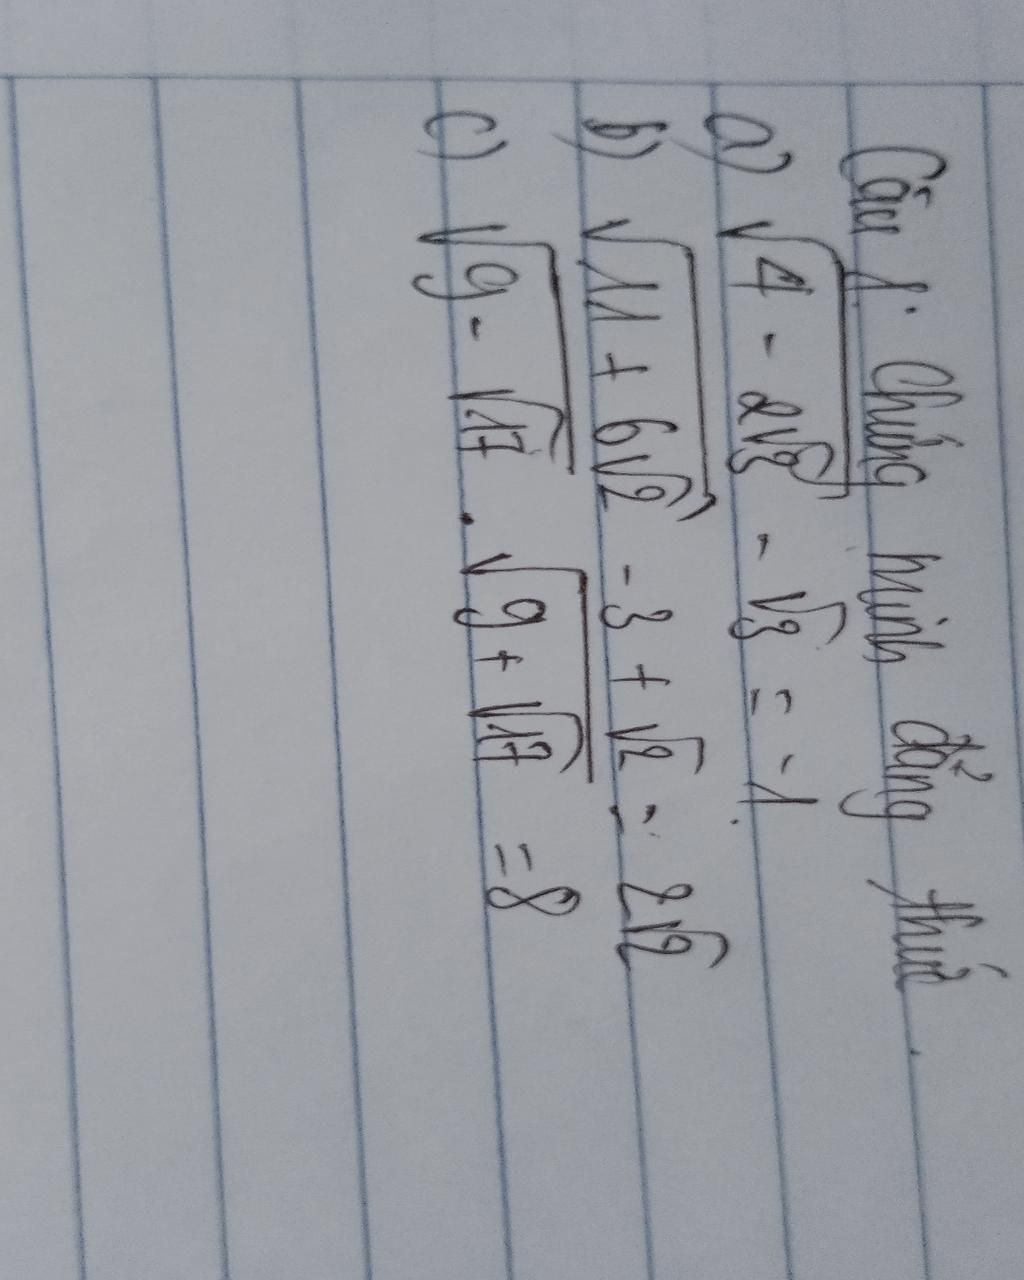 Câu 1. Chứng minh đẳng thức.
a) √(4 - 2√3) - √3 = -1.
b) √(11 + 6√2) - 3 + √2 = 2√2
c) √(9 - √17) . √(9 + √17) = 8